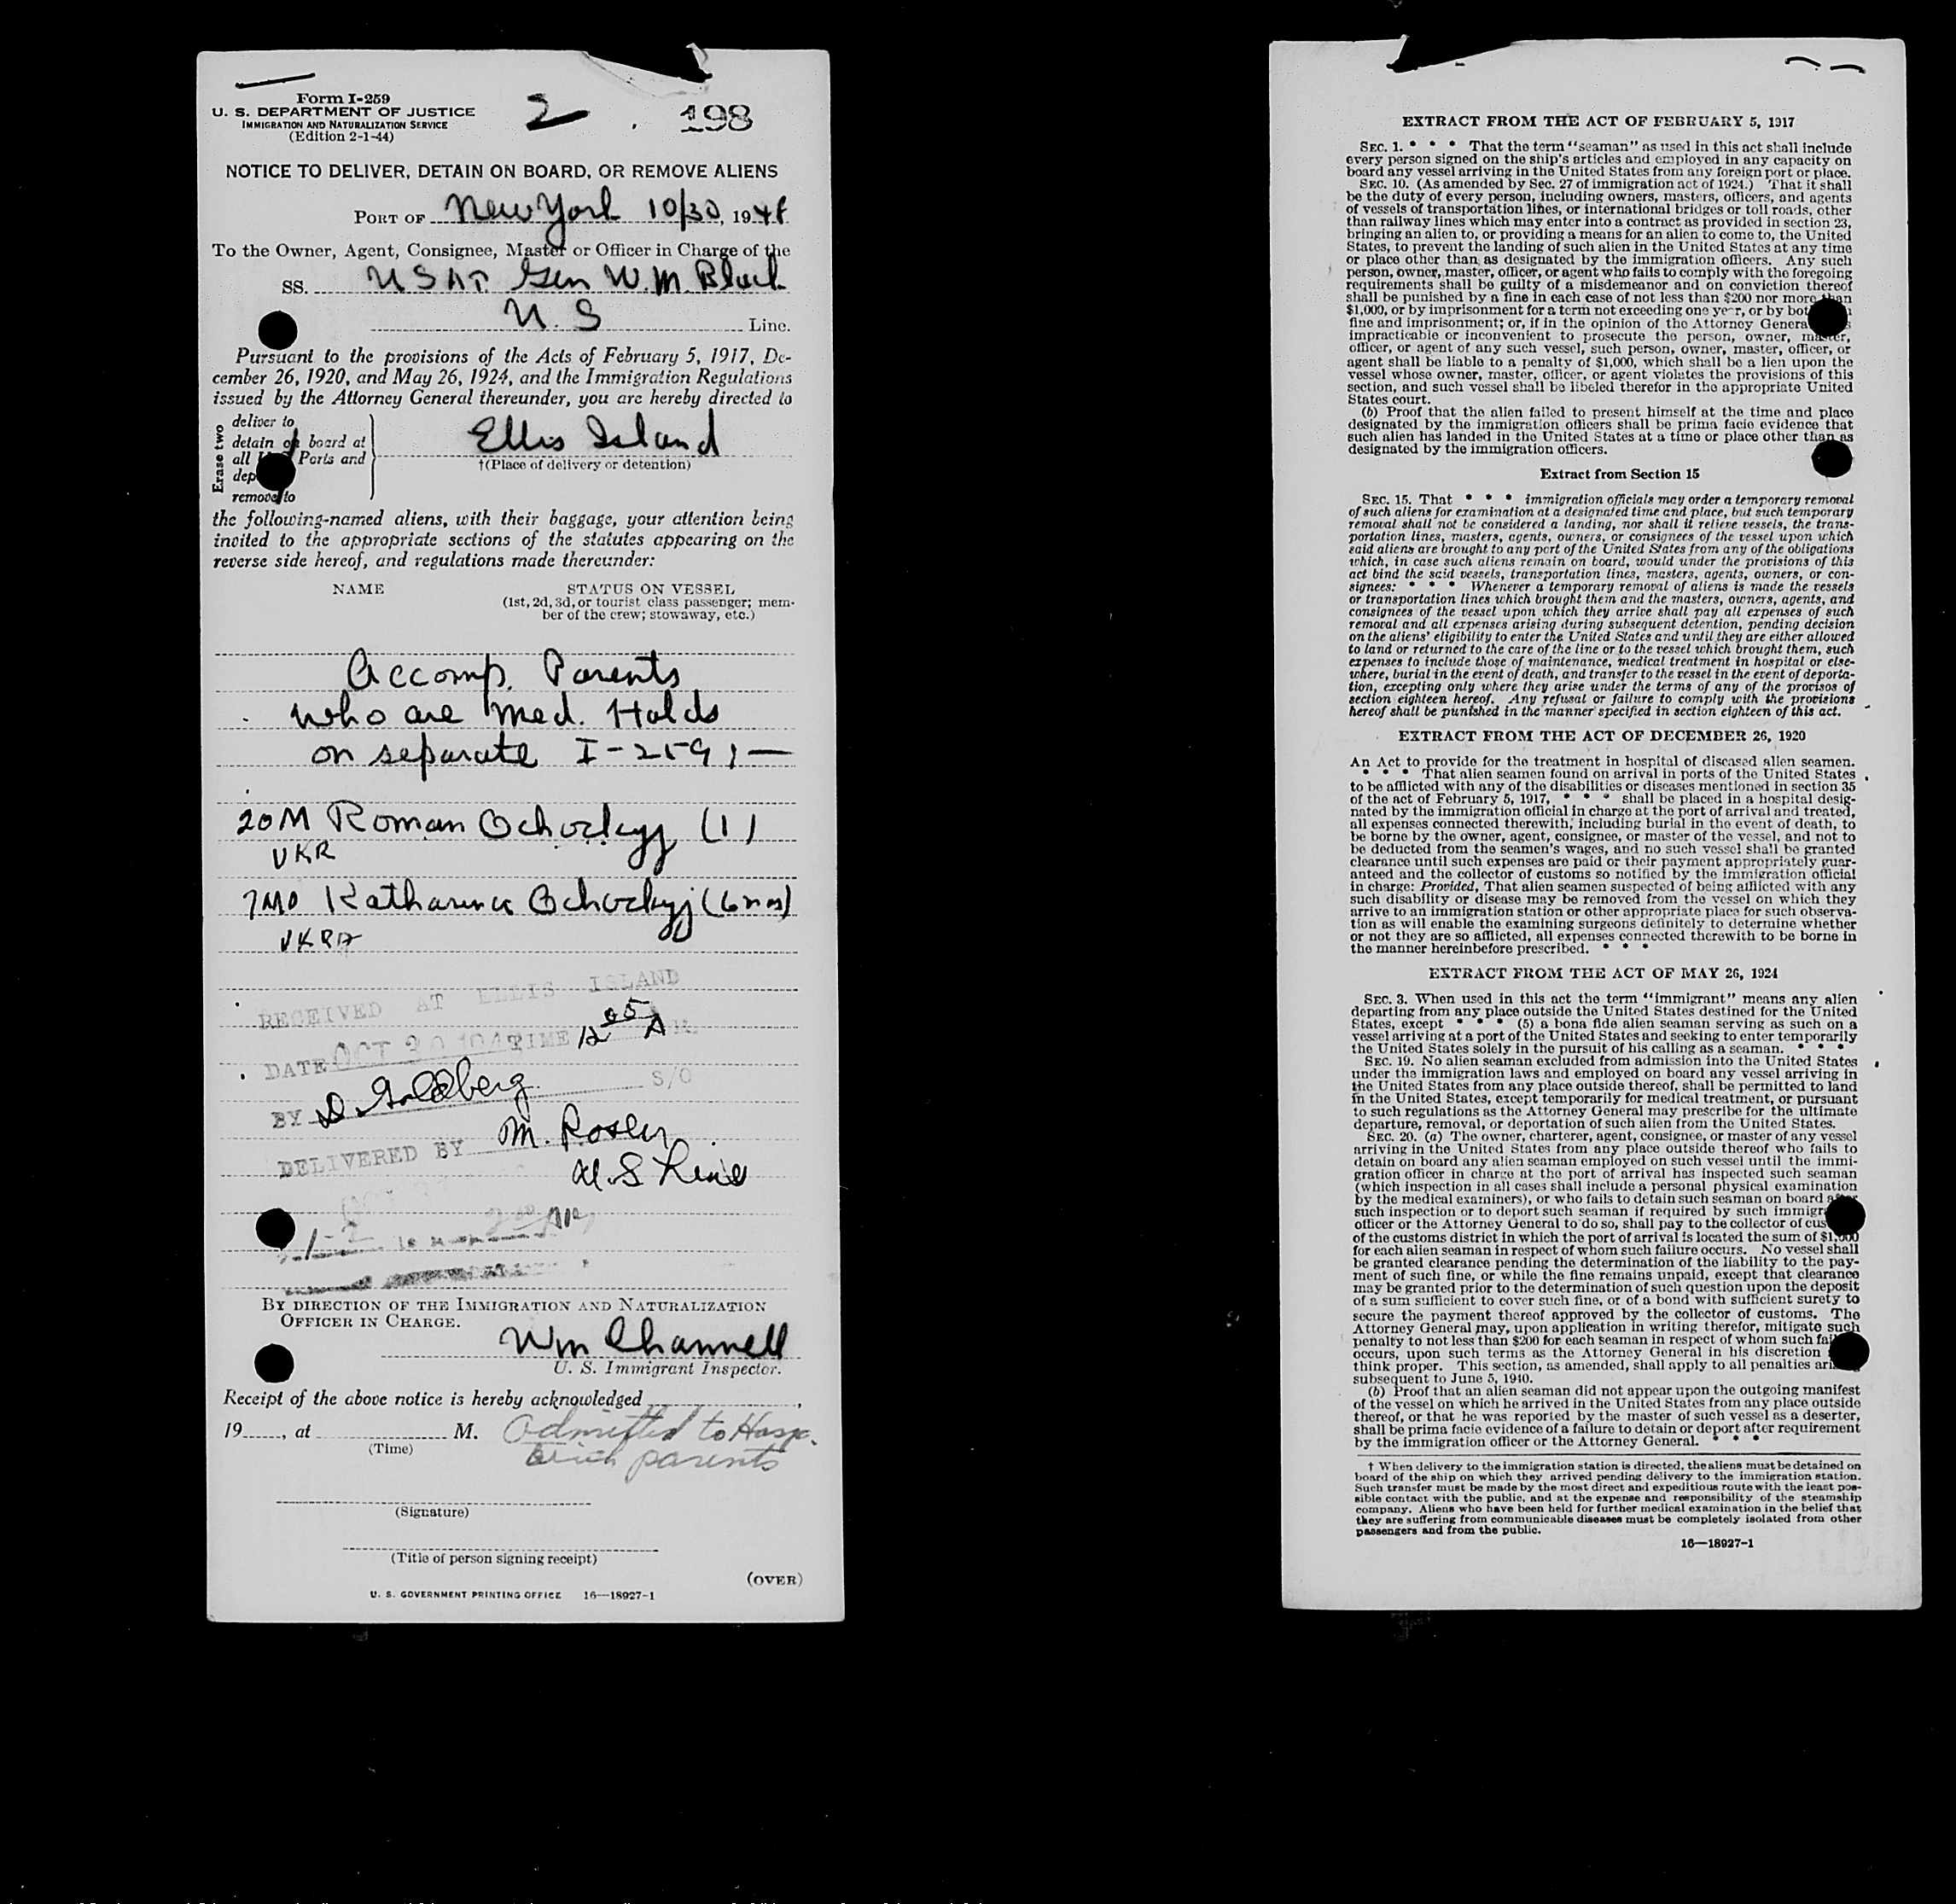 Form I-259
U. S. DEPARTMENT OF JUSTICE
IMMIGRATION AND NATURALIZATION SERVICE
(Edition 2-1-44)
2 198
NOTICE TO DELIVER, DETAIN ON BOARD, OR REMOVE ALIENS
PORT OF New York 10/30, 1948
To the Owner, Agent, Consignee, Master or Officer in Charge of the
SS. USAT Gen W. M. Black
U. S Line.
Pursuant to the provisions of the Acts of February 5, 1917, De-
cember 26, 1920, and May 26, 1924, and the Immigration Regulations
issued by the Attorney General thereunder, you are hereby directed to
Erase two
deliver to
detain on board at
all Ports and
remove to
Ellis Island
†(Place of delivery or detention)
the following-named aliens, with their baggage, your attention being
invited to the appropriate sections of the statutes appearing on the
reverse side hereof, and regulations made thereunder:
NAME STATUS ON VESSEL
(1st, 2d, 3d, or tourist class passenger; mem-
ber of the crew; stowaway, etc.)
Accomp. Parents
who are Med. Holds
on separate I-259 ; —
20M Roman (1)
UKR
7MO Katharina (6 mos)
RECEIVED AT ELLIS ISLAND
DATE OCT 30 1948 TIME 12 05 A M.
BY D. Goldberg S/O
DELIVERED BY M. Rosen
U. S Line
BY DIRECTION OF THE IMMIGRATION AND NATURALIZATION
OFFICER IN CHARGE.
Wm Channell
U. S. Immigrant Inspector.
Receipt of the above notice is hereby acknowledged ,
19 , at M. Admitted to Hosp.
(Time) with parents
(Signature)
(Title of person signing receipt)
(OVER)
U. S. GOVERNMENT PRINTING OFFICE 16—18927-1
EXTRACT FROM THE ACT OF FEBRUARY 5, 1917
SEC. 1. * * * That the term "seaman" as used in this act shall include
every person signed on the ship's articles and employed in any capacity on
board any vessel arriving in the United States from any foreign port or place.
SEC. 10. (As amended by Sec. 27 of immigration act of 1924.) That it shall
be the duty of every person, including owners, masters, officers, and agents
of vessels of transportation lines, or international bridges or toll roads, other
than railway lines which may enter into a contract as provided in section 23,
bringing an alien to, or providing a means for an alien to come to, the United
States, to prevent the landing of such alien in the United States at any time
or place other than as designated by the immigration officers. Any such
person, owner, master, officer, or agent who fails to comply with the foregoing
requirements shall be guilty of a misdemeanor and on conviction thereof
shall be punished by a fine in each case of not less than $200 nor more than
$1,000, or by imprisonment for a term not exceeding one year, or by both
fine and imprisonment; or, if in the opinion of the Attorney General
impracticable or inconvenient to prosecute the person, owner, master,
officer, or agent of any such vessel, such person, owner, master, officer, or
agent shall be liable to a penalty of $1,000, which shall be a lien upon the
vessel whose owner, master, officer, or agent violates the provisions of this
section, and such vessel shall be libeled therefor in the appropriate United
States court.
(b) Proof that the alien failed to present himself at the time and place
designated by the immigration officers shall be prima facie evidence that
such alien has landed in the United States at a time or place other than as
designated by the immigration officers.
Extract from Section 15
SEC. 15. That * * * immigration officials may order a temporary removal
of such aliens for examination at a designated time and place, but such temporary
removal shall not be considered a landing, nor shall it relieve vessels, the trans-
portation lines, masters, agents, owners, or consignees of the vessel upon which
said aliens are brought to any port of the United States from any of the obligations
which, in case such aliens remain on board, would under the provisions of this
act bind the said vessels, transportation lines, masters, agents, owners, or con-
signees: * * * Whenever a temporary removal of aliens is made the vessels
or transportation lines which brought them and the masters, owners, agents, and
consignees of the vessel upon which they arrive shall pay all expenses of such
removal and all expenses arising during subsequent detention, pending decision
on the aliens' eligibility to enter the United States and until they are either allowed
to land or returned to the care of the line or to the vessel which brought them, such
expenses to include those of maintenance, medical treatment in hospital or else-
where, burial in the event of death, and transfer to the vessel in the event of deporta-
tion, excepting only where they arise under the terms of any of the provisos of
section eighteen hereof. Any refusal or failure to comply with the provisions
hereof shall be punished in the manner specified in section eighteen of this act.
EXTRACT FROM THE ACT OF DECEMBER 26, 1920
An Act to provide for the treatment in hospital of diseased alien seamen.
* * * That alien seamen found on arrival in ports of the United States
to be afflicted with any of the disabilities or diseases mentioned in section 35
of the act of February 5, 1917, * * * shall be placed in a hospital desig-
nated by the immigration official in charge at the port of arrival and treated,
all expenses connected therewith, including burial in the event of death, to
be borne by the owner, agent, consignee, or master of the vessel, and not to
be deducted from the seamen's wages, and no such vessel shall be granted
clearance until such expenses are paid or their payment appropriately guar-
anteed and the collector of customs so notified by the immigration official
in charge: Provided, That alien seamen suspected of being afflicted with any
such disability or disease may be removed from the vessel on which they
arrive to an immigration station or other appropriate place for such observa-
tion as will enable the examining surgeons definitely to determine whether
or not they are so afflicted, all expenses connected therewith to be borne in
the manner hereinbefore prescribed. * * *
EXTRACT FROM THE ACT OF MAY 26, 1924
SEC. 3. When used in this act the term "immigrant" means any alien
departing from any place outside the United States destined for the United
States, except * * * (5) a bona fide alien seaman serving as such on a
vessel arriving at a port of the United States and seeking to enter temporarily
the United States solely in the pursuit of his calling as a seaman. * * *
SEC. 19. No alien seaman excluded from admission into the United States
under the immigration laws and employed on board any vessel arriving in
the United States from any place outside thereof, shall be permitted to land
in the United States, except temporarily for medical treatment, or pursuant
to such regulations as the Attorney General may prescribe for the ultimate
departure, removal, or deportation of such alien from the United States.
SEC. 20. (a) The owner, charterer, agent, consignee, or master of any vessel
arriving in the United States from any place outside thereof who fails to
detain on board any alien seaman employed on such vessel until the immi-
gration officer in charge at the port of arrival has inspected such seaman
(which inspection in all cases shall include a personal physical examination
by the medical examiners), or who fails to detain such seaman on board after
such inspection or to deport such seaman if required by such immigr
officer or the Attorney General to do so, shall pay to the collector of cus
of the customs district in which the port of arrival is located the sum of $1,000
for each alien seaman in respect of whom such failure occurs. No vessel shall
be granted clearance pending the determination of the liability to the pay-
ment of such fine, or while the fine remains unpaid, except that clearance
may be granted prior to the determination of such question upon the deposit
of a sum sufficient to cover such fine, or of a bond with sufficient surety to
secure the payment thereof approved by the collector of customs. The
Attorney General may, upon application in writing therefor, mitigate such
penalty to not less than $200 for each seaman in respect of whom such fai
occurs, upon such terms as the Attorney General in his discretion
think proper. This section, as amended, shall apply to all penalties ari
subsequent to June 5, 1940.
(b) Proof that an alien seaman did not appear upon the outgoing manifest
of the vessel on which he arrived in the United States from any place outside
thereof, or that he was reported by the master of such vessel as a deserter,
shall be prima facie evidence of a failure to detain or deport after requirement
by the immigration officer or the Attorney General. * * *
† When delivery to the immigration station is directed, the aliens must be detained on
board of the ship on which they arrived pending delivery to the immigration station.
Such transfer must be made by the most direct and expeditious route with the least pos-
sible contact with the public, and at the expense and responsibility of the steamship
company. Aliens who have been held for further medical examination in the belief that
they are suffering from communicable diseases must be completely isolated from other
passengers and from the public.
16—18927-1